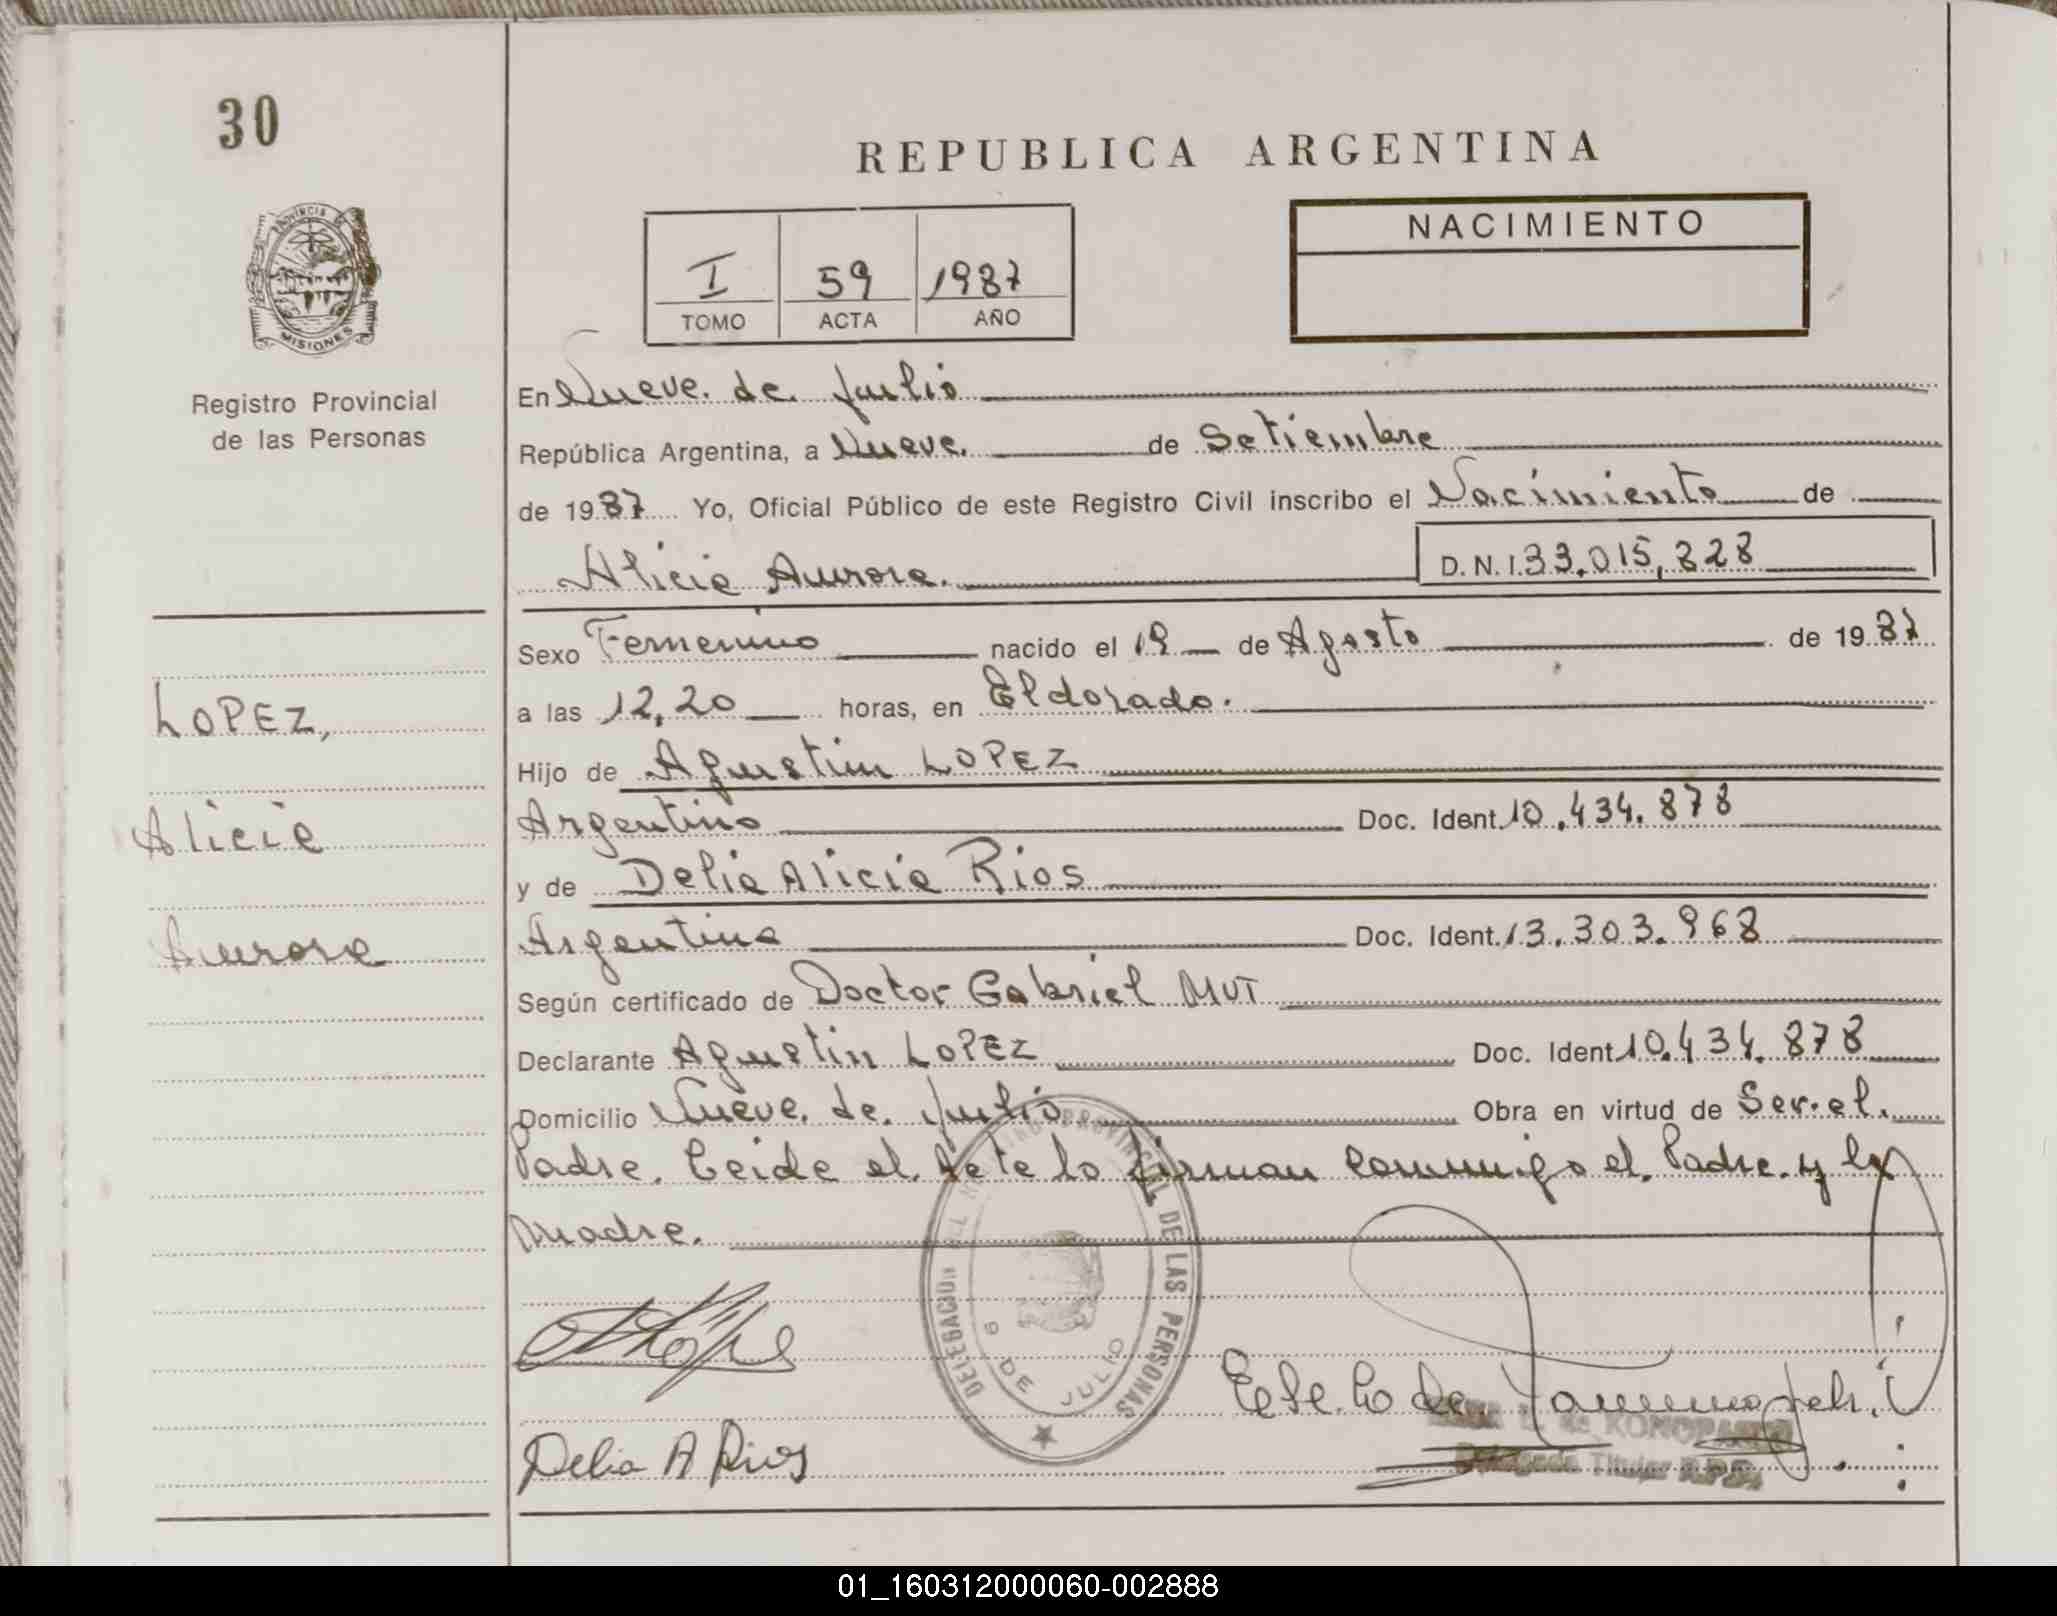 30
REPUBLICA ARGENTINA
NACIMIENTO
I 59 1987
TOMO ACTA AÑO
PROVINCIA DE
MISIONES
Registro Provincial
de las Personas
En Nueve de Julio
República Argentina, a Nueve de Setiembre
de 1987 Yo, Oficial Público de este Registro Civil inscribo el Nacimiento de
Alicia Aurora. D.N.I. 33.015.828
Sexo Femenino nacido el 19 de Agosto de 1987
a las 12,20 horas, en Eldorado.
Hijo de Agustin LOPEZ
Argentino Doc. Ident. 10.434.878
y de Delia Alicia Rios
Argentina Doc. Ident. 13.303.968
Según certificado de Doctor Gabriel MUT
Declarante Agustin LOPEZ Doc. Ident 10.434.878
Domicilio Nueve de Julio Obra en virtud de Ser el
Padre. Leida el Acta la firman conmigo el Padre y la
Madre.
LOPEZ,
Alicia
Aurora
DELEGACION DEL REGISTRO PROVINCIAL DE LAS PERSONAS
9 DE JULIO
A López
Delia A Rios
de KONOPACKI
Delegada Titular R.P.P.
01_160312000060-002888